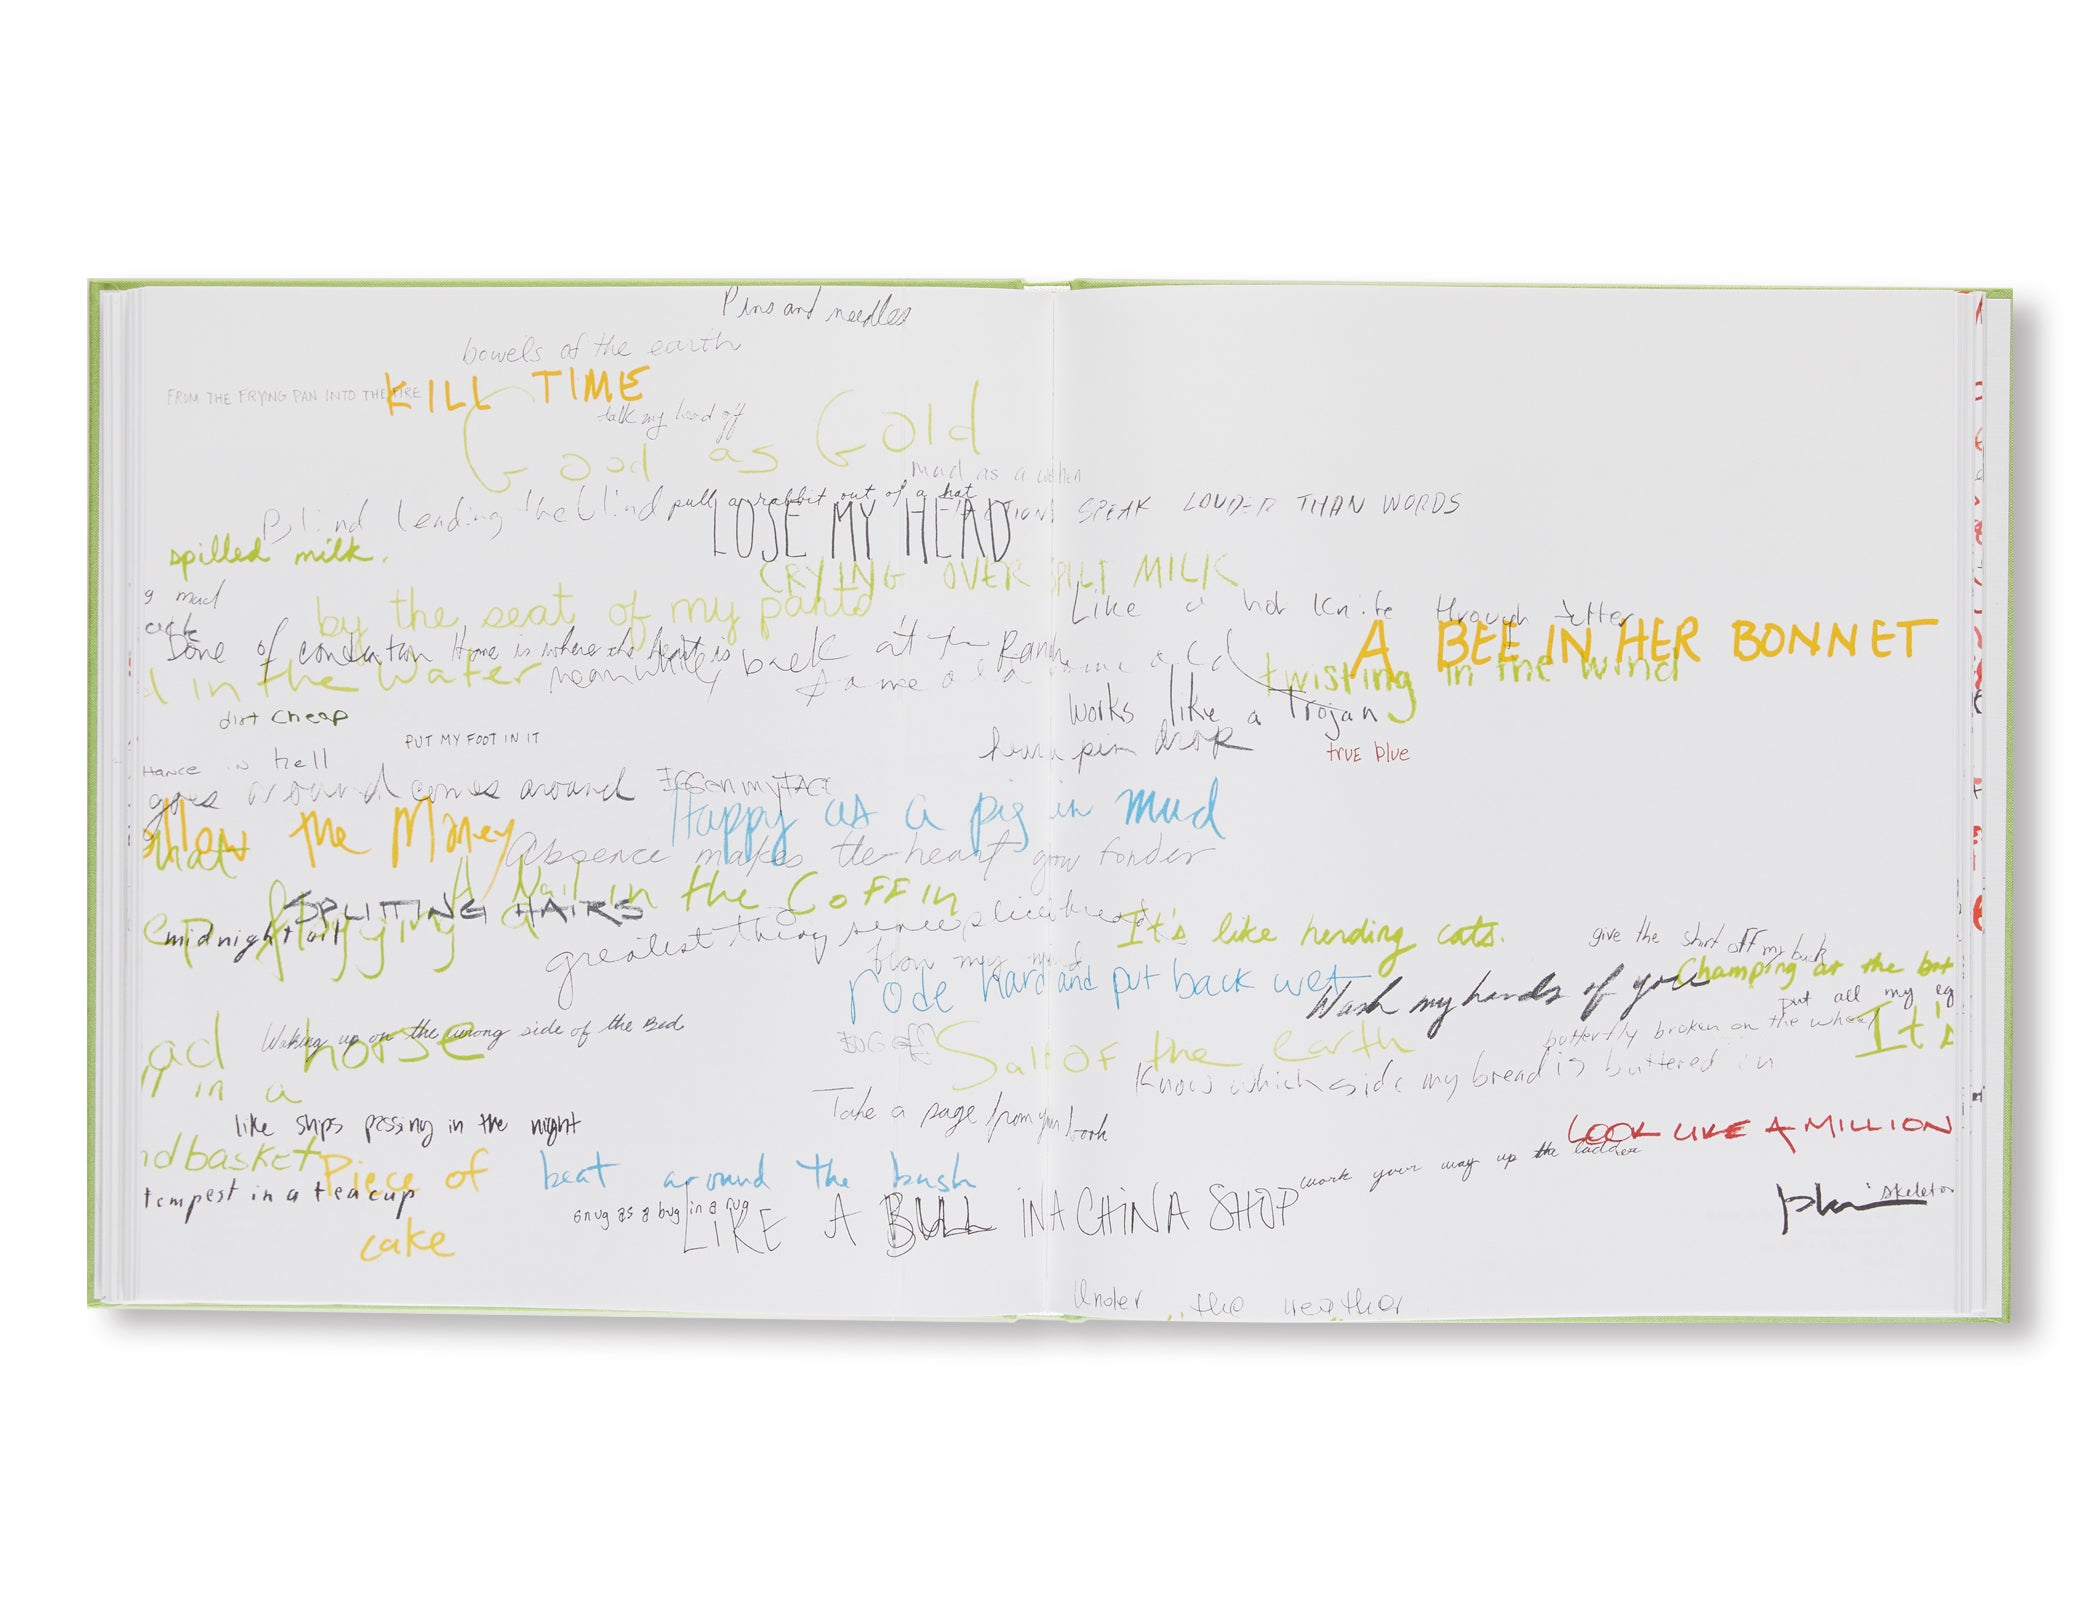 Pins and needles
bowels of the earth
KILL TIME
FROM THE FRYING PAN INTO THE FIRE
talk my head off
Good as Gold
mad as a
Blind leading the blind
pull a rabbit out of a hat
ACTIONS SPEAK LOUDER THAN WORDS
LOSE MY HEAD
spilled milk.
CRYING OVER SPILT MILK
g mad
by the seat of my pants
Like a hot knife through butter
A BEE IN HER BONNET
Done of
Home is where the heart is
meanwhile, back at the Ranch
same old same old
twisting in the wind
d in the water
works like a Trojan
dirt cheap
PUT MY FOOT IN IT
hear a pin drop
true blue
Hance in hell
goes around comes around
EGG ON MY FACE
Happy as a pig in mud
ollow the Money
hat
Absence makes the heart grow fonder
A Nail in the Coffin
SPLITTING HAIRS
ep flogging a
midnight oil
greatest thing since slice bread
It's like herding cats.
give the shirt off my back
blow my mind
rode hard and put back wet
Wash my hands of you
Champing at the bit
put all my eg
butterfly broken on the wheel
It's
ead horse
Waking up on the wrong side of the Bed
BUG OFF
Salt OF the earth
Know which side my bread is buttered in
y in a
Take a page from your book
like ships passing in the night
LOOK LIKE A MILLION
work your way up the ladder
ndbasket
Piece of
beat around the bush
tempest in a teacup
snug as a bug in a rug
LIKE A BULL IN A CHINA SHOP
skeleton
cake
Under the weather